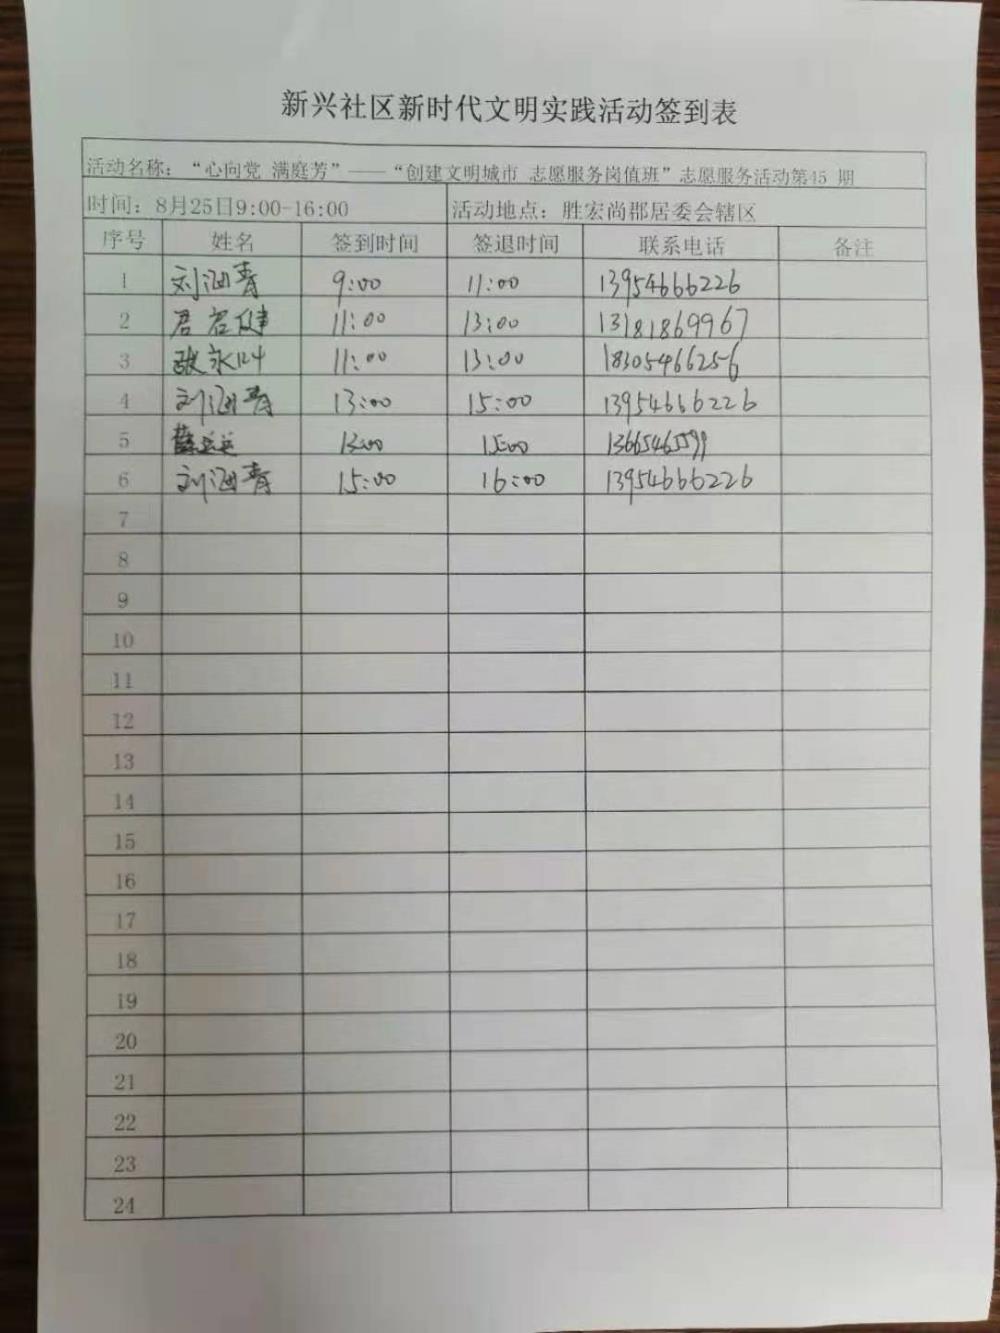 新兴社区新时代文明实践活动签到表
活动名称：“心向党 满庭芳”——“创建文明城市 志愿服务岗值班”志愿服务活动第45 期
时间：8月25日9:00-16:00 活动地点：胜宏尚郡居委会辖区
序号 姓名 签到时间 签退时间 联系电话 备注
1 刘涵青 9:00 11:00 13954666226
2 11:00 13:00 13181869967
3 张永 11:00 13:00 18305466256
4 刘涵青 13:00 15:00 13954666226
5 13:00 15:00 13665465599
6 刘涵青 15:00 16:00 13954666226
7
8
9
10
11
12
13
14
15
16
17
18
19
20
21
22
23
24